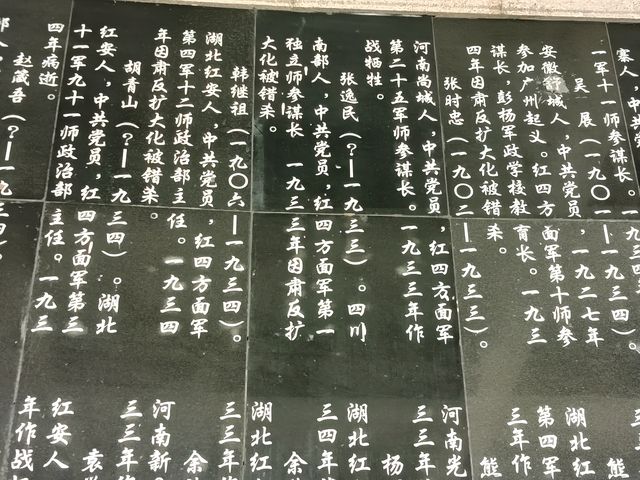 寨人，中
一军十一师参谋长。一
吴展（一九〇一—一九三三）。
安徽舒城人，中共党员，一九二七年
参加广州起义。红四方面军第十师参
谋长，彭杨军政学校教育长。一九三
四年因肃反扩大化被错杀。
张时忠（一九〇二—一九三三）。
河南尚城人，中共党员，红四方面军
第二十五军师参谋长。一九三三年作
战牺牲。
张逸民（？—一九三三）。四川
南部人，中共党员，红四方面军第一
独立师参谋长 一九三三年因肃反扩
大化被错杀。
韩继祖（一九〇六—一九三四）。
湖北红安人，中共党员，红四方面军
第四军十二师政治部主任。一九三四
年因肃反扩大化被错杀。
胡青山（？—一九三四）。湖北
红安人，中共党员，红四方面军第三
十一军九十一师政治部主任。一九三
四年病逝。
赵箴吾（？—一九三四）。
熊
湖北红
第四军
三年作
熊
河南光
三三年
杨
湖北
三四年
余
湖北红
三三年
余
河南新
三三年
袁
红安人
年作战